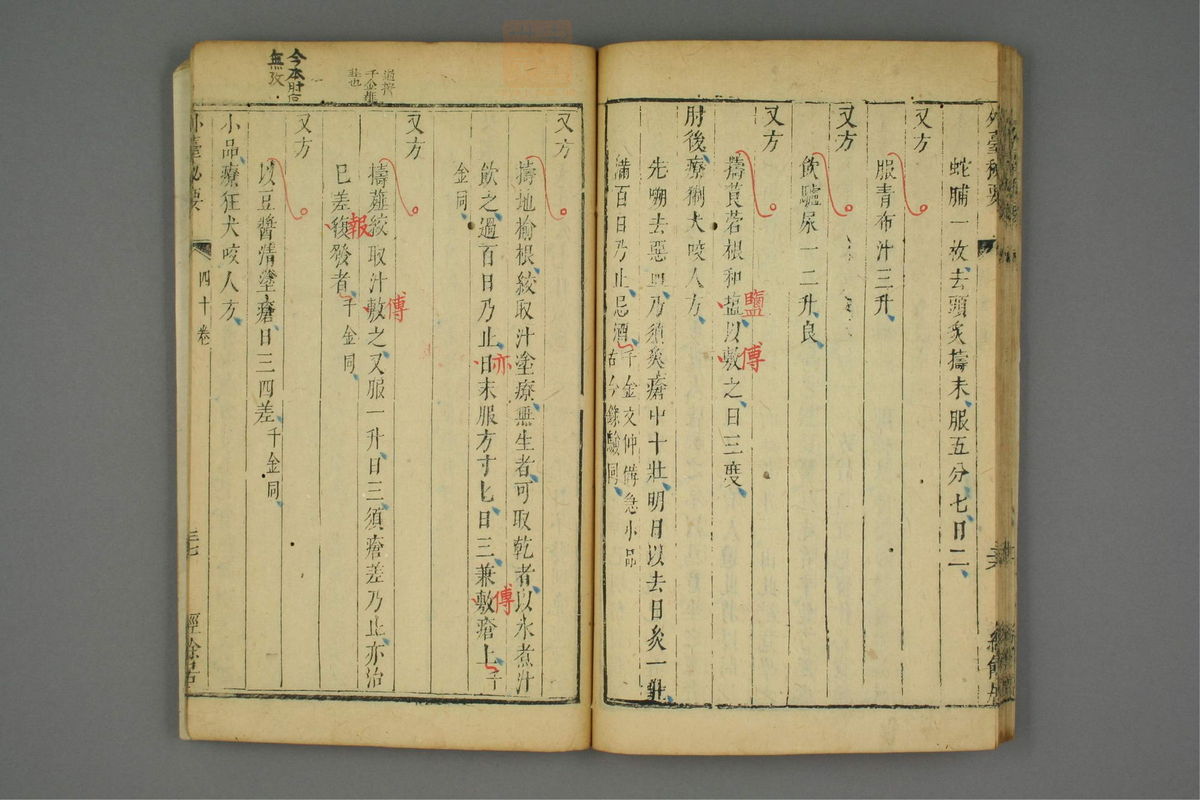 蛇脯一枚去頭炙擣末服五分七日二
又方
服青布汁三升
又方
飲驢尿一二升良
又方
擣莨菪根和塩以敷之日三度
鹽
傅
肘後療猘犬咬人方
先嗍去惡血乃須炙瘡中十壯明日以去日炙一壯
滿百日乃止忌酒千金文仲備急小品
古今錄驗同
又方
擣地榆根絞取汁塗療無生者可取乾者以水煮汁
飲之過百日乃止日末服方寸匕日三兼敷瘡上千
金同
亦
傅
又方
擣薤絞取汁敷之又服一升日三須瘡差乃止亦治
傅
已差復發者千金同
報
又方
以豆醬清塗瘡日三四差千金同
小品療狂犬咬人方
外臺秘要
四十卷
今本肘后
無攷